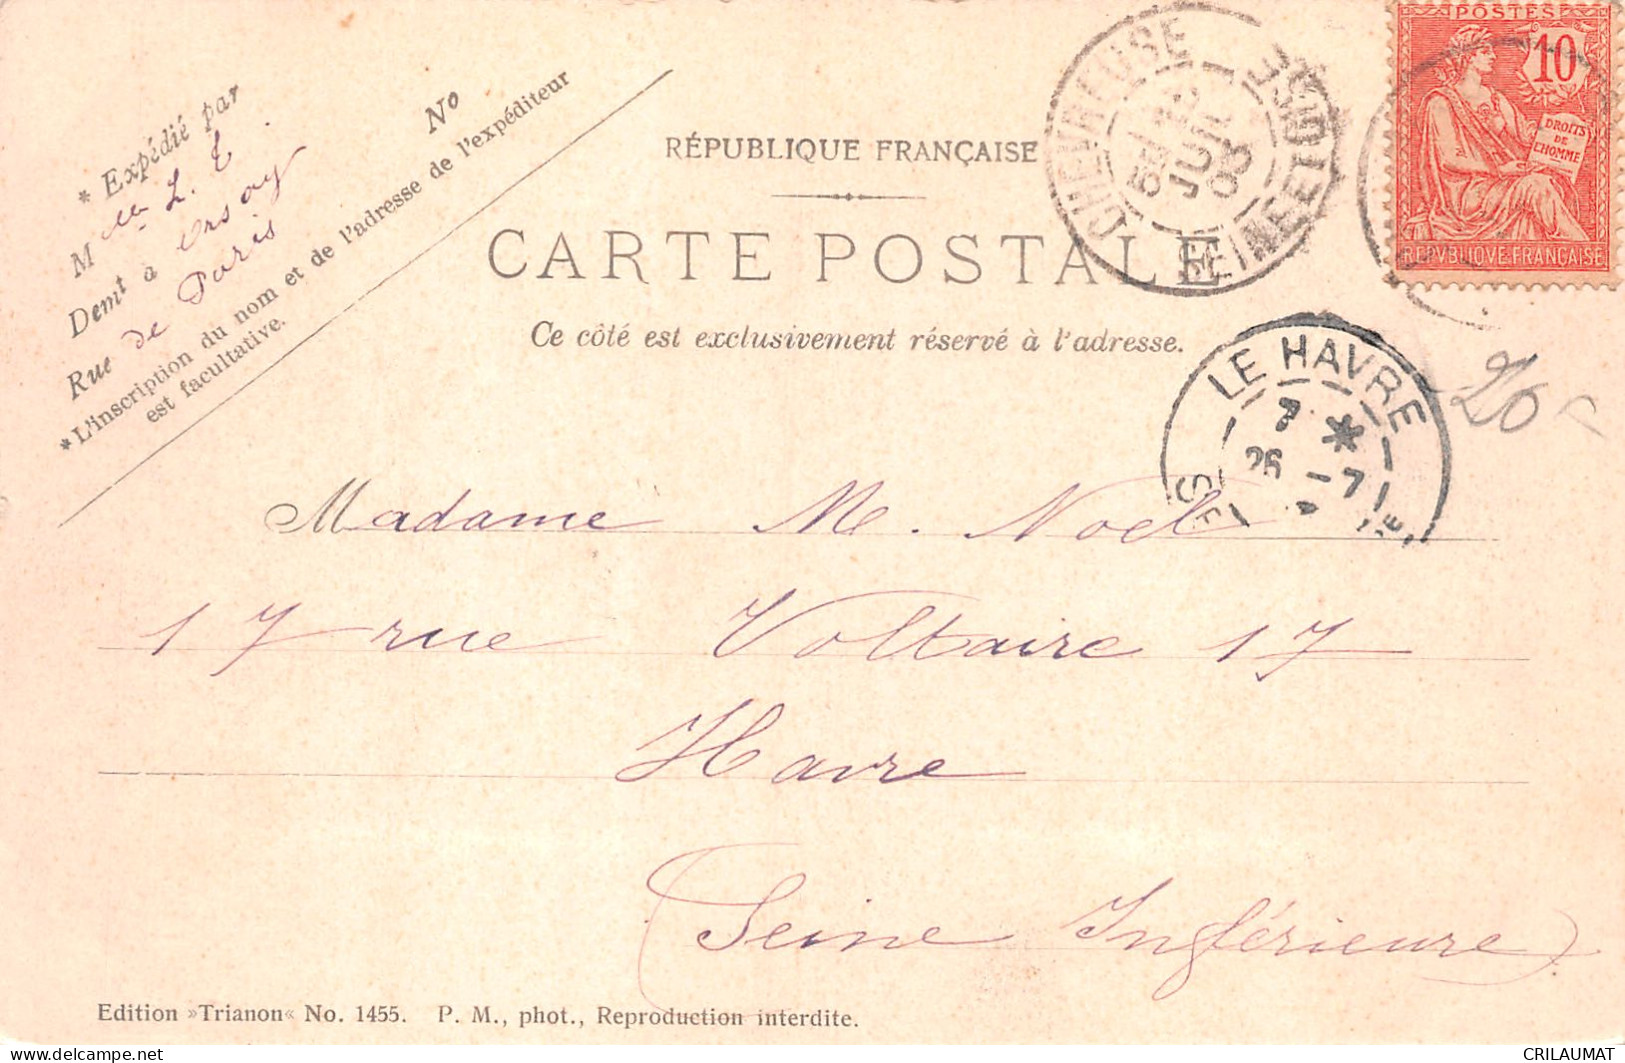 * Expédié par
M elle L. E.
Demt à Orsay
Rue de Paris
No
*L'inscription du nom et de l'adresse de l'expéditeur
est facultative.
RÉPUBLIQUE FRANÇAISE
CARTE POSTALE
Ce côté est exclusivement réservé à l'adresse.
CHEVREUSE
JUIL
03
SEINE ET OISE
POSTES
10
DROITS
DE
L'HOMME
REPVBLIQVE FRANÇAISE
LE HAVRE
7 *
26 -7
20
Madame M. Noël
17 rue Voltaire 17
Havre
(Seine Inférieure)
Edition »Trianon« No. 1455. P. M., phot., Reproduction interdite.
CRILAUMAT